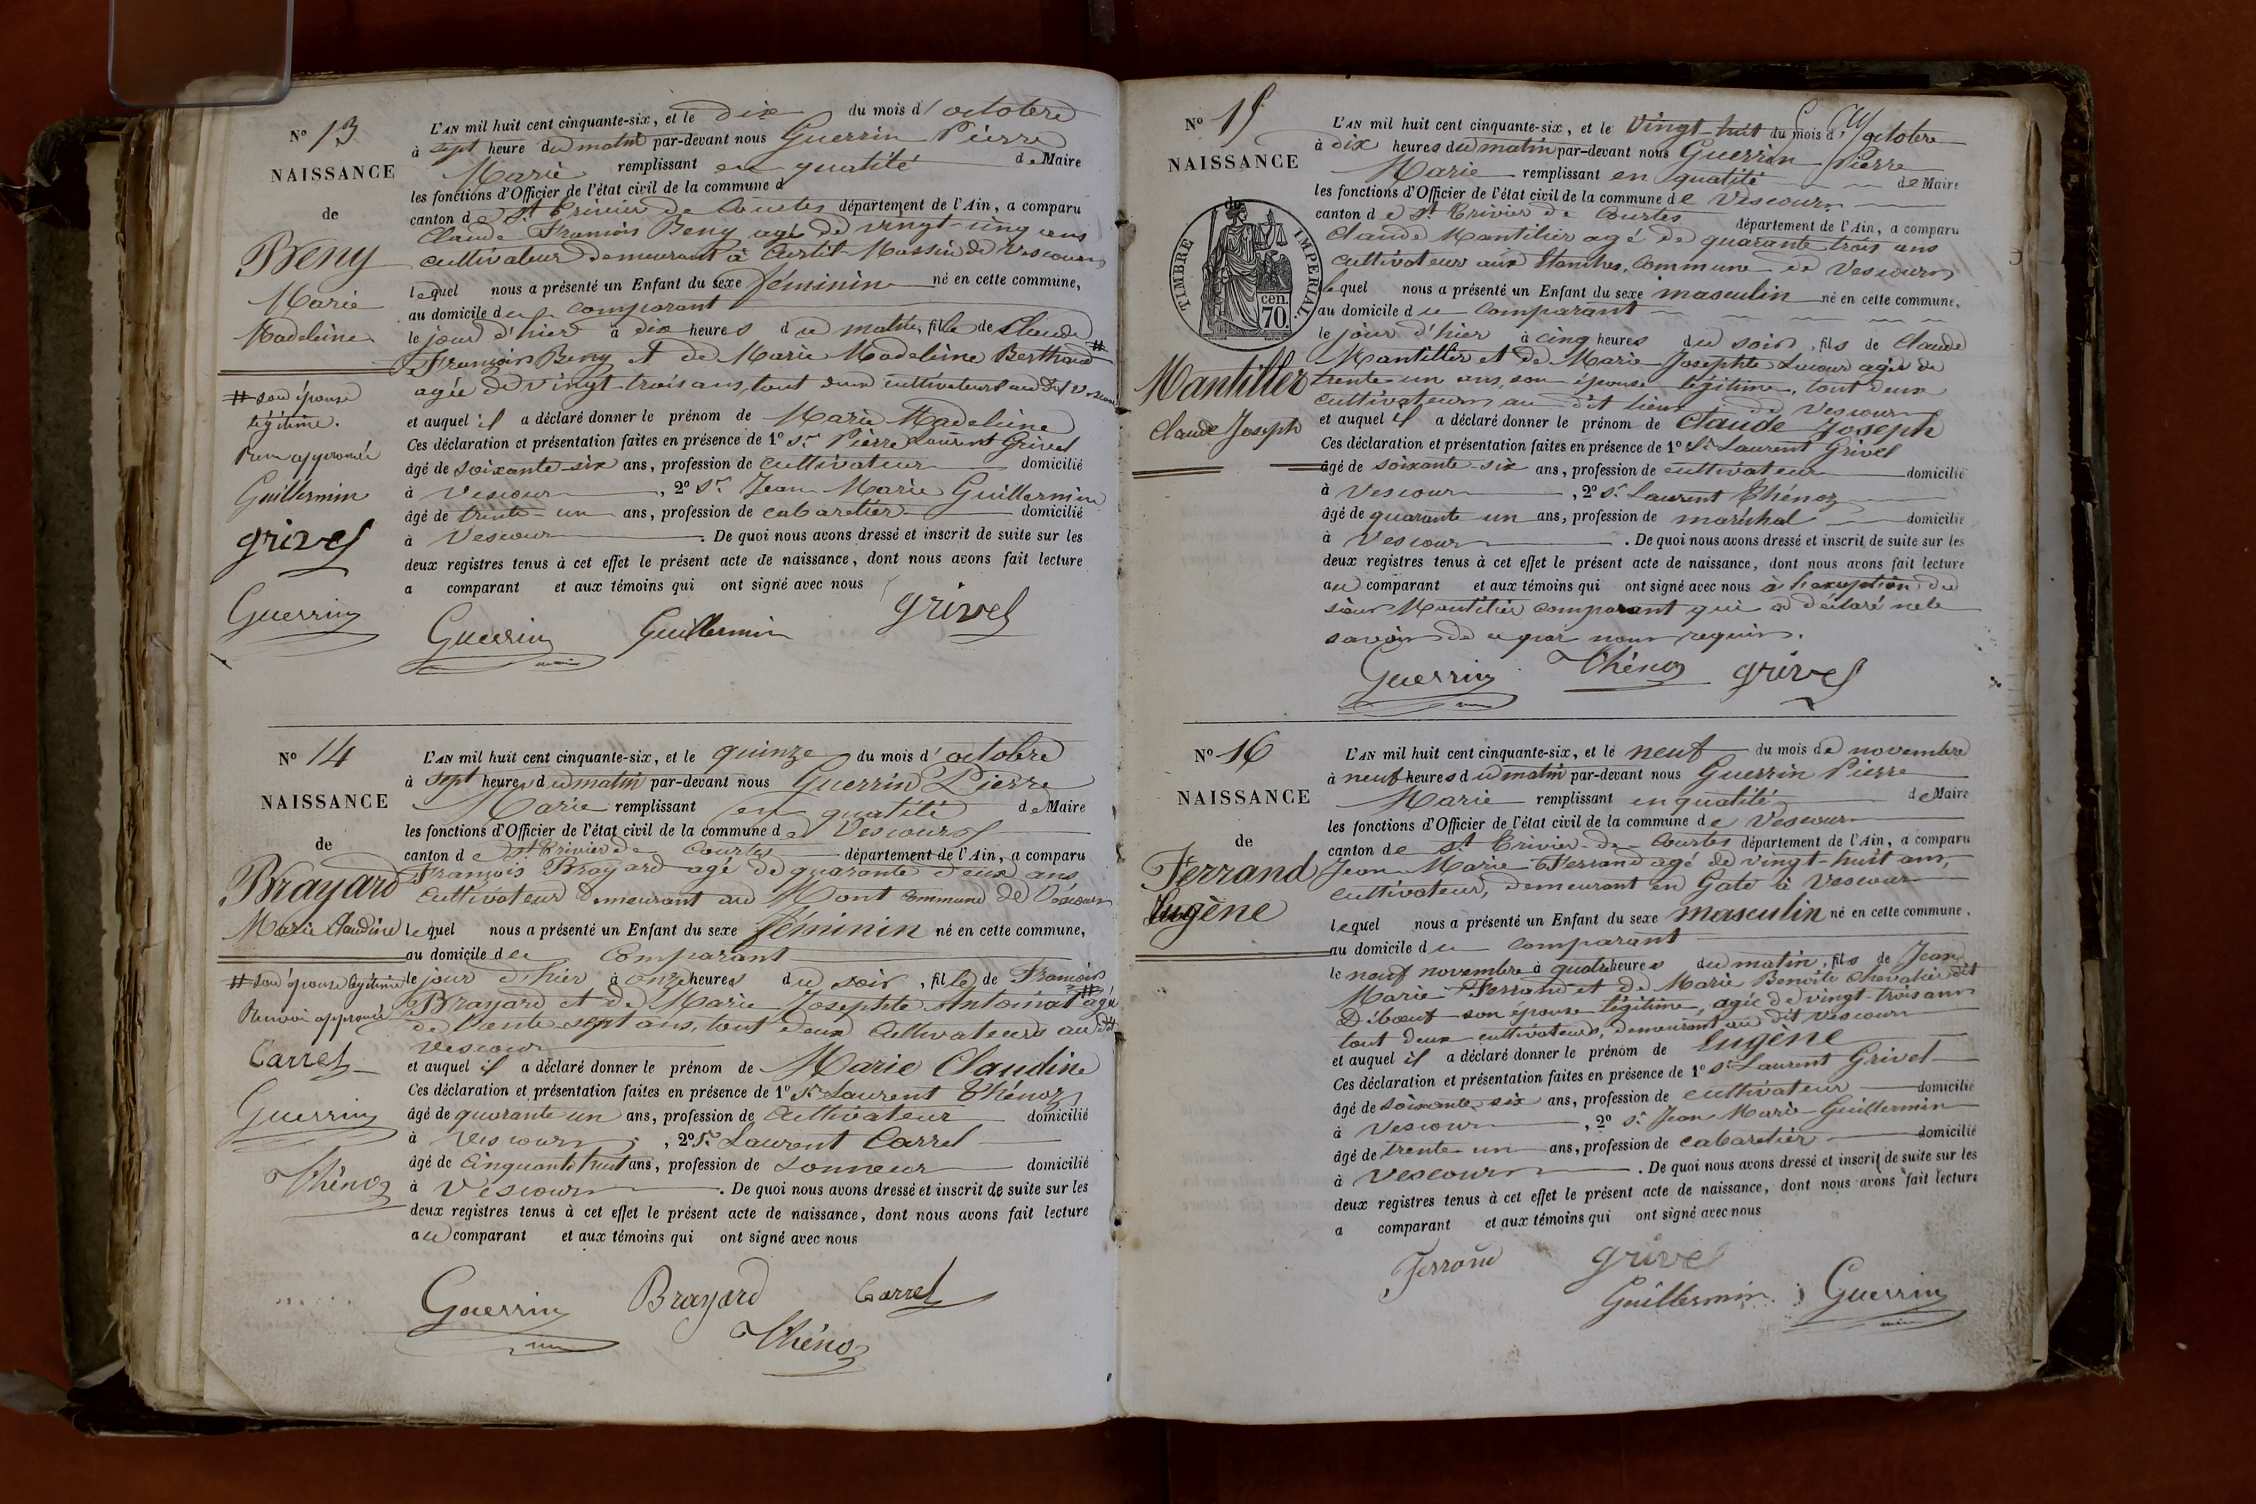 N° 13
NAISSANCE
de
Beny
Marie
Madeleine
# son épouse
légitime.
Guillermin
grivel
Guerrin
L'AN mil huit cent cinquante-six, et le dix du mois d'octobre
à sept heure du matin par-devant nous Guerrin Pierre
Marie remplissant en qualité de Maire
les fonctions d'Officier de l'état civil de la commune d
canton de St Trivier de Courtes département de l'Ain, a comparu
Claude François Beny agé de vingt-cinq ans
cultivateur demeurant à Curtit-Massin de Vescours
lequel nous a présenté un Enfant du sexe féminin né en cette commune,
au domicile du comparant
le jour d'hier à dix heures du matin, fille de Claude
François Beny et de Marie Madeleine Berthaud #
agée de vingt-trois ans, tout deux cultivateurs au dit Vescours
et auquel il a déclaré donner le prénom de Marie Madeleine
Ces déclaration et présentation faites en présence de 1° Sr Pierre Laurent Grivel
âgé de soixante-six ans, profession de cultivateur domicilié
à Vescours, 2° Sr Jean Marie Guillermin
âgé de trente-un ans, profession de cabaretier domicilié
à Vescours. De quoi nous avons dressé et inscrit de suite sur les
deux registres tenus à cet effet le présent acte de naissance, dont nous avons fait lecture
a comparant et aux témoins qui ont signé avec nous
Guerrin Guillermin grivel
N° 14
NAISSANCE
de
Brayard
Marie Claudine
# son épouse légitime
Renvoi approuvé
Carrel
Guerrin
Thénoz
L'AN mil huit cent cinquante-six, et le quinze du mois d'octobre
à sept heures du matin par-devant nous Guerrin Pierre
Marie remplissant en qualité de Maire
les fonctions d'Officier de l'état civil de la commune de Vescours
canton de St Trivier de Courtes département de l'Ain, a comparu
François Brayard agé de quarante deux ans
cultivateur demeurant au Mont commune de Vescours
lequel nous a présenté un Enfant du sexe féminin né en cette commune,
au domicile du comparant
le jour d'hier à onze heures du soir, fille de François
Brayard et de Marie Josephte Antoinat # agée
de trente-sept ans, tout deux cultivateurs au dit
Vescours
et auquel il a déclaré donner le prénom de Marie Claudine
Ces déclaration et présentation faites en présence de 1° Sr Laurent Thénoz
âgé de quarante un ans, profession de cultivateur domicilié
à Vescours, 2° Sr Laurent Carrel
âgé de cinquante huit ans, profession de sonneur domicilié
à Vescours. De quoi nous avons dressé et inscrit de suite sur les
deux registres tenus à cet effet le présent acte de naissance, dont nous avons fait lecture
au comparant et aux témoins qui ont signé avec nous
Guerrin Brayard Carrel
Thénoz
N° 15
NAISSANCE
de
TIMBRE IMPERIAL
70. cen.
Mantilier
Claude Joseph
L'AN mil huit cent cinquante-six, et le vingt-huit du mois d'octobre
à dix heures du matin par-devant nous Guerrin Pierre
Marie remplissant en qualité de Maire
les fonctions d'Officier de l'état civil de la commune de Vescours
canton de St Trivier de Courtes département de l'Ain, a comparu
Claude Mantilier agé de quarante-trois ans
cultivateur aux commune de Vescours
lequel nous a présenté un Enfant du sexe masculin né en cette commune,
au domicile du comparant
le jour d'hier à cinq heures du soir, fils de Claude
Mantilier et de Marie Josephte agée de
trente-un ans, son épouse légitime, tout deux
cultivateurs au dit lieu de Vescours
et auquel il a déclaré donner le prénom de Claude Joseph
Ces déclaration et présentation faites en présence de 1° Sr Laurent Grivel
âgé de soixante-six ans, profession de cultivateur domicilié
à Vescours, 2° Sr Laurent Thénoz
âgé de quarante un ans, profession de maréchal domicilié
à Vescours. De quoi nous avons dressé et inscrit de suite sur les
deux registres tenus à cet effet le présent acte de naissance, dont nous avons fait lecture
au comparant et aux témoins qui ont signé avec nous à l'exception du
sieur Mantilier comparant qui a déclaré ne le
savoir de ce par nous requis.
Guerrin Thénoz grivel
N° 16
NAISSANCE
de
Ferrand
Eugène
L'AN mil huit cent cinquante-six, et le neuf du mois de novembre
à neuf heures du matin par-devant nous Guerrin Pierre
Marie remplissant en qualité de Maire
les fonctions d'Officier de l'état civil de la commune de Vescours
canton de St Trivier-de-Courtes département de l'Ain, a comparu
Jean Marie Ferrand agé de vingt-huit ans,
cultivateur, demeurant en Gate à Vescours
lequel nous a présenté un Enfant du sexe masculin né en cette commune,
au domicile du comparant
le neuf novembre à quatre heures du matin, fils de Jean
Marie Ferrand et de Marie Benoite Chevalier dit
Débœuf son épouse légitime, agée de vingt-trois ans
tout deux cultivateurs, demeurant au dit Vescours
et auquel il a déclaré donner le prénom de Eugène
Ces déclaration et présentation faites en présence de 1° Sr Laurent Grivel
âgé de soixante-six ans, profession de cultivateur domicilié
à Vescours, 2° Sr Jean Marie Guillermin
âgé de trente un ans, profession de cabaretier domicilié
à Vescours. De quoi nous avons dressé et inscrit de suite sur les
deux registres tenus à cet effet le présent acte de naissance, dont nous avons fait lecture
a comparant et aux témoins qui ont signé avec nous
Ferrand grivel
Guillermin Guerrin